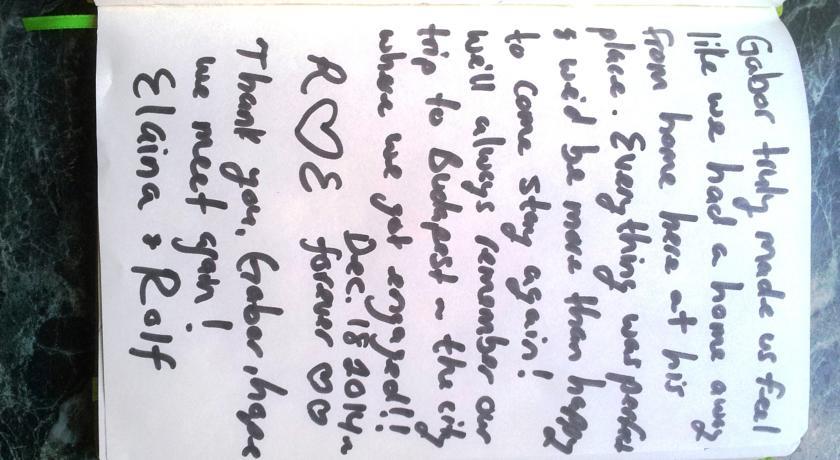 Gabor truly made us feel
like we had a home away
from home here at his
place. Everything was perfect
& we'd be more than happy
to come stay again!
we'll always remember our
trip to Budapest ~ the city
where we got engaged!!
Dec. 18 2014 ~
R ♡ E forever ♡♡
Thank you, Gabor, hope
we meet again!
Elaina & Rolf